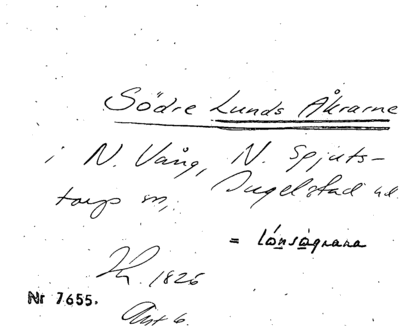 Södre Lunds Åkrarne
i N. Vång, N. Spjuts-
torp sn, Ingelstad hd.
= lónsógrana
1826
Nr 7655.
Akt 6.